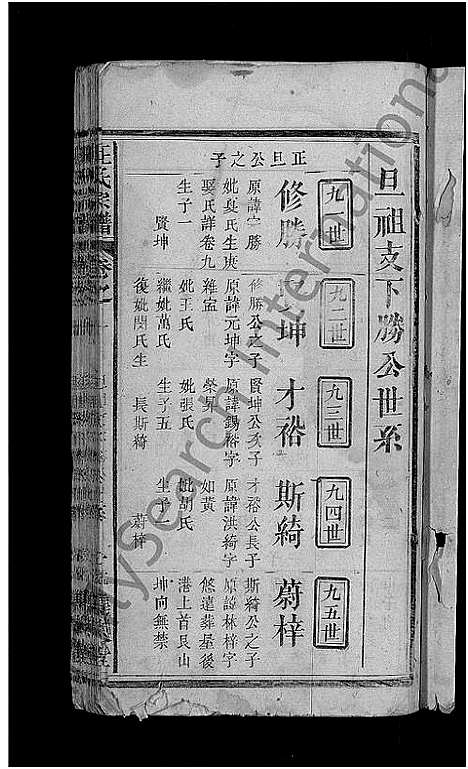 旦祖支下勝公世系
九一世
正旦公之子
修勝
原諱宇勝
妣夏氏生庚
娶氏詳卷九
生子一
賢坤
九二世
賢坤
修勝公之子
原諱元坤字
維宝
妣王氏
繼妣萬氏
復妣閔氏生
九三世
才裕
賢坤公次子
原諱錫裕字
榮昇
妣張氏
生子五
長斯綺
九四世
斯綺
才裕公長子
原諱洪綺字
如黃
妣胡氏
生子一
蔚梓
九五世
蔚梓
斯綺公之子
原諱林梓字
悠達葬屋後
港上首艮山
坤向無禁
汪氏宗譜
卷之
FamilySearch International